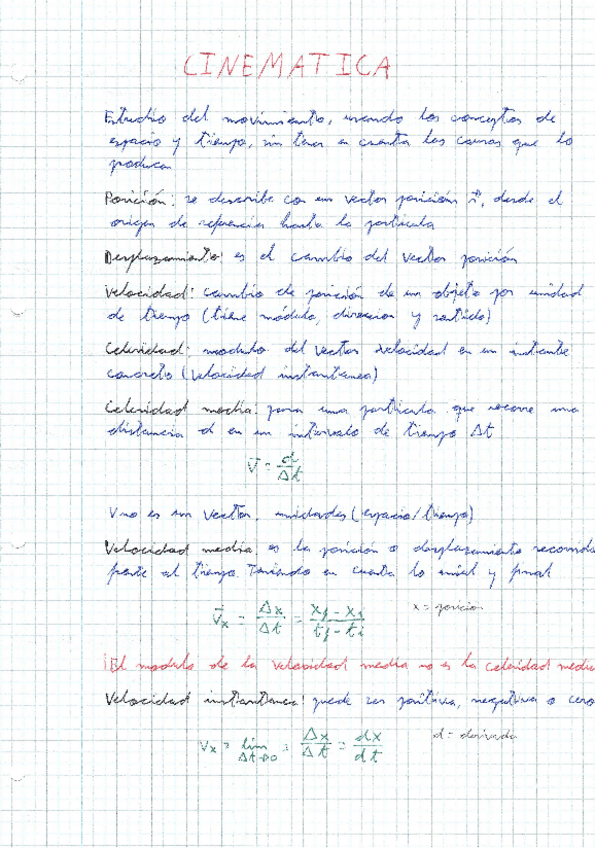 CINEMATICA
Estudio del movimiento, usando los conceptos de
espacio y tiempo, sin tener en cuenta las causas que lo
producen
Posición: se describe con un vector posición r⃗, desde el
origen de referencia hasta la partícula
Desplazamiento: es el cambio del vector posición
Velocidad: cambio de posición de un objeto por unidad
de tiempo (tiene módulo, direccion y sentido)
Celeridad: modulo del vector velocidad en un instante
concreto (velocidad instantanea)
Celeridad media: para una partícula que recorre una
distancia d en un intervalo de tiempo Δt
v̄ = d/Δt
V no es un vector, unidades (espacio/tiempo)
Velocidad media: es la posición o desplazamiento recorrido
frente al tiempo. Teniendo en cuenta lo inicial y final
v⃗x = Δx/Δt = xf - xi/tf - ti x = posicion
¡El modulo de la velocidad media no es la celeridad media
Velocidad instantanea: puede ser positiva, negativa o cero
Vx = lim Δt→0 = Δx/Δt = dx/dt d = derivada